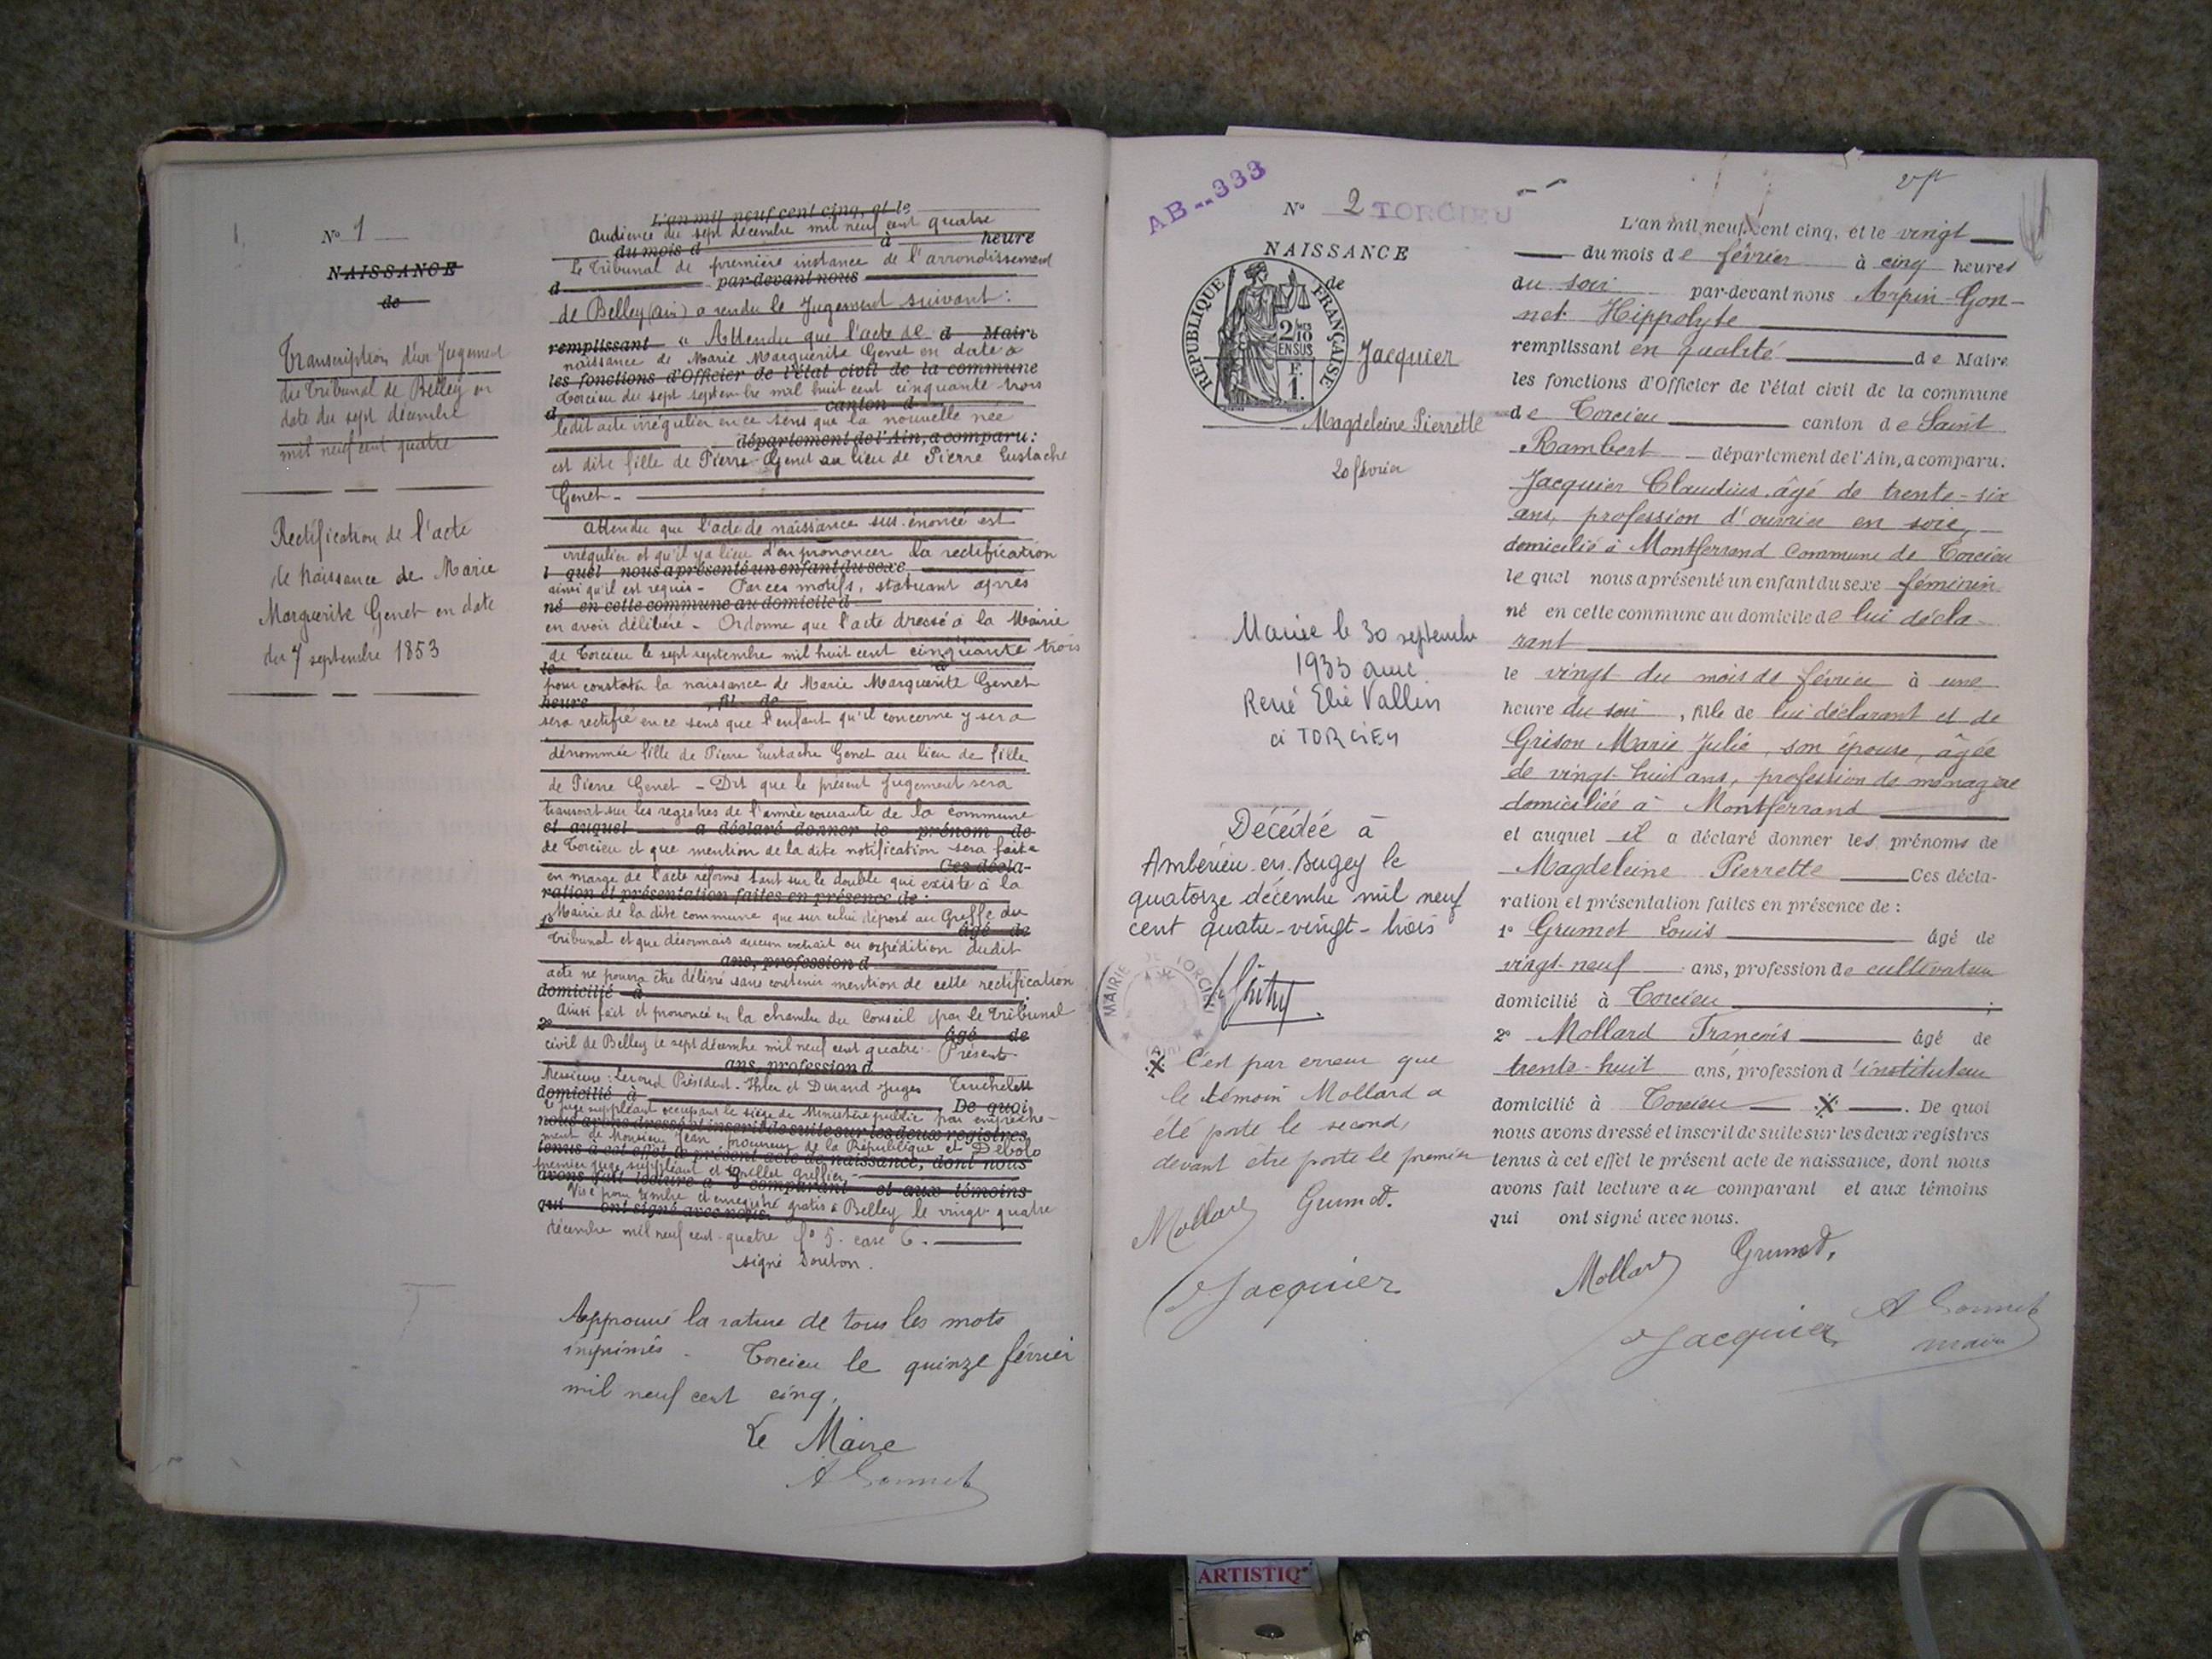 1.
Nº 1
NAISSANCE
de
Transcription d'un Jugement
du Tribunal de Belley en
date du sept décembre
mil neuf cent quatre
Rectification de l'acte
de naissance de Marie
Marguerite Genet en date
du 7 septembre 1853
L'an mil neuf cent cinq, et le
Audience du sept décembre mil neuf cent quatre
du mois d à heure
Le Tribunal de première instance de l'arrondissement
d par-devant nous
de Belley (ain) a rendu le Jugement suivant :
remplissant « Attendu que l'acte de d Maire
naissance de Marie Marguerite Genet en date à
les fonctions d'Officier de l'état civil de la commune
Torcieu du sept septembre mil huit cent cinquante-trois
d canton d
ledit acte irrégulier en ce sens que la nouvelle née
département de l'Ain, a comparu :
est dite fille de Pierre Genet au lieu de Pierre Eustache
Genet -
Attendu que l'acte de naissance sus-énoncé est
irrégulier et qu'il y a lieu d'en prononcer la rectification
l quel nous a présenté un enfant du sexe
ainsi qu'il est requis - Par ces motifs, statuant après
né en cette commune au domicile d
en avoir délibéré - Ordonne que l'acte dressé à la Mairie
de Torcieu le sept septembre mil huit cent cinquante trois
le à
pour constater la naissance de Marie Marguerite Genet
heure , fil de
sera rectifié en ce sens que l'enfant qu'il concerne y sera
dénommée fille de Pierre Eustache Genet au lieu de fille
de Pierre Genet - Dit que le présent Jugement sera
transcrit sur les registres de l'année courante de la commune
et auquel a déclaré donner le prénom de
de Torcieu et que mention de la dite notification sera faite
Ces décla-
en marge de l'acte réformé tant sur le double qui existe à la
ration et présentation faites en présence de :
1º Mairie de la dite commune que sur celui déposé au Greffe du
âgé de
Tribunal et que désormais aucun extrait ou expédition dudit
ans, profession d
acte ne pourra être délivré sans contenir mention de cette rectification
domicilié à
Ainsi fait et prononcé en la chambre du Conseil par le Tribunal
2º âgé de
civil de Belley le sept décembre mil neuf cent quatre. Présents
ans, profession d
Messieurs : Président - et Durand Juges
domicilié à De quoi
le juge suppléant occupant le siège du Ministère public par empêche-
nous avons dressé et inscrit de suite sur les deux registres
ment de Monsieur Jean, procureur de la République et
tenus à cet effet le présent acte de naissance, dont nous
premier juge suppléant et greffier,
avons fait lecture a comparant et aux témoins
Visé pour timbre et enregistré gratis à Belley le vingt-quatre
qui ont signé avec nous.
décembre mil neuf cent quatre fº 5. case 6.
signé
Approuvé la rature de tous les mots
imprimés - Torcieu le quinze février
mil neuf cent cinq.
Le Maire
A Gonnet
AB--333
Nº 2 TORCIEU
NAISSANCE
de
RÉPUBLIQUE FRANÇAISE
2/10
EN SUS
F.
1.
Jacquier
Magdeleine Pierrette
20 février
Mariée le 30 septembre
1933 avec
René Elie Vallin
à TORCIEU
Décédée à
Ambérieu-en-Bugey le
quatorze décembre mil neuf
cent quatre-vingt-trois
MAIRIE DE TORCIEU
(Ain)
C'est par erreur que
le témoin Mollard a
été porté le second,
devant être porté le premier
Mollard Grumet.
Jacquier
L'an mil neuf cent cinq, et le vingt
du mois de février à cinq heures
du soir par-devant nous Arpin-Gon-
net Hippolyte
remplissant en qualité de Maire
les fonctions d'Officier de l'état civil de la commune
de Torcieu canton de Saint
Rambert département de l'Ain, a comparu.
Jacquier Claudius, âgé de trente-six
ans, profession d'ouvrier en soie,
domicilié à Montferrand commune de Torcieu
le quel nous a présenté un enfant du sexe féminin
né en cette commune au domicile de lui décla-
rant
le vingt du mois de février à une
heure du soir, fille de lui déclarant et de
Grison Marie Julie, son épouse, âgée
de vingt-huit ans, profession de ménagère
domiciliée à Montferrand
et auquel il a déclaré donner les prénoms de
Magdeleine Pierrette Ces décla-
ration et présentation faites en présence de :
1º Grumet Louis âgé de
vingt-neuf ans, profession de cultivateur
domicilié à Torcieu ;
2º Mollard François âgé de
trente-huit ans, profession d'instituteur
domicilié à Torcieu . De quoi
nous avons dressé et inscrit de suite sur les deux registres
tenus à cet effet le présent acte de naissance, dont nous
avons fait lecture au comparant et aux témoins
qui ont signé avec nous.
Mollard Grumet,
Jacquier A Gonnet
maire
ARTISTIQ